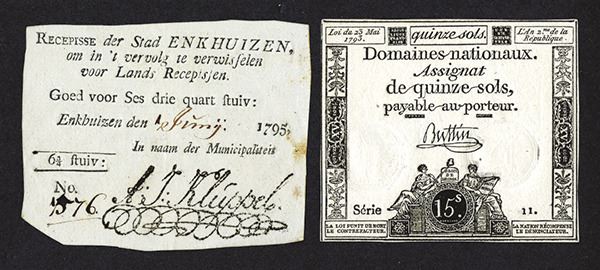 RECEPISSE der Stad ENKHUIZEN,
om in 't vervolg te verwisselen
voor Lands Recepisjen.
Goed voor Ses drie quart stuiv:
Enkhuizen den 1 Junij. 1795.
In naam der Municipaliteit
6¾ stuiv:
No.
1576.
A: J: Kluppel.
Loi du 23 Mai
1793.
quinze sols.
L'An 2.me de la
République.
Domaines nationaux.
Assignat
de quinze sols,
payable au porteur.
Buttin
Série
15.s
11.
LA LOI PUNIT DE MORT
LE CONTREFACTEUR.
LA NATION RÉCOMPENSE
LE DÉNONCIATEUR.